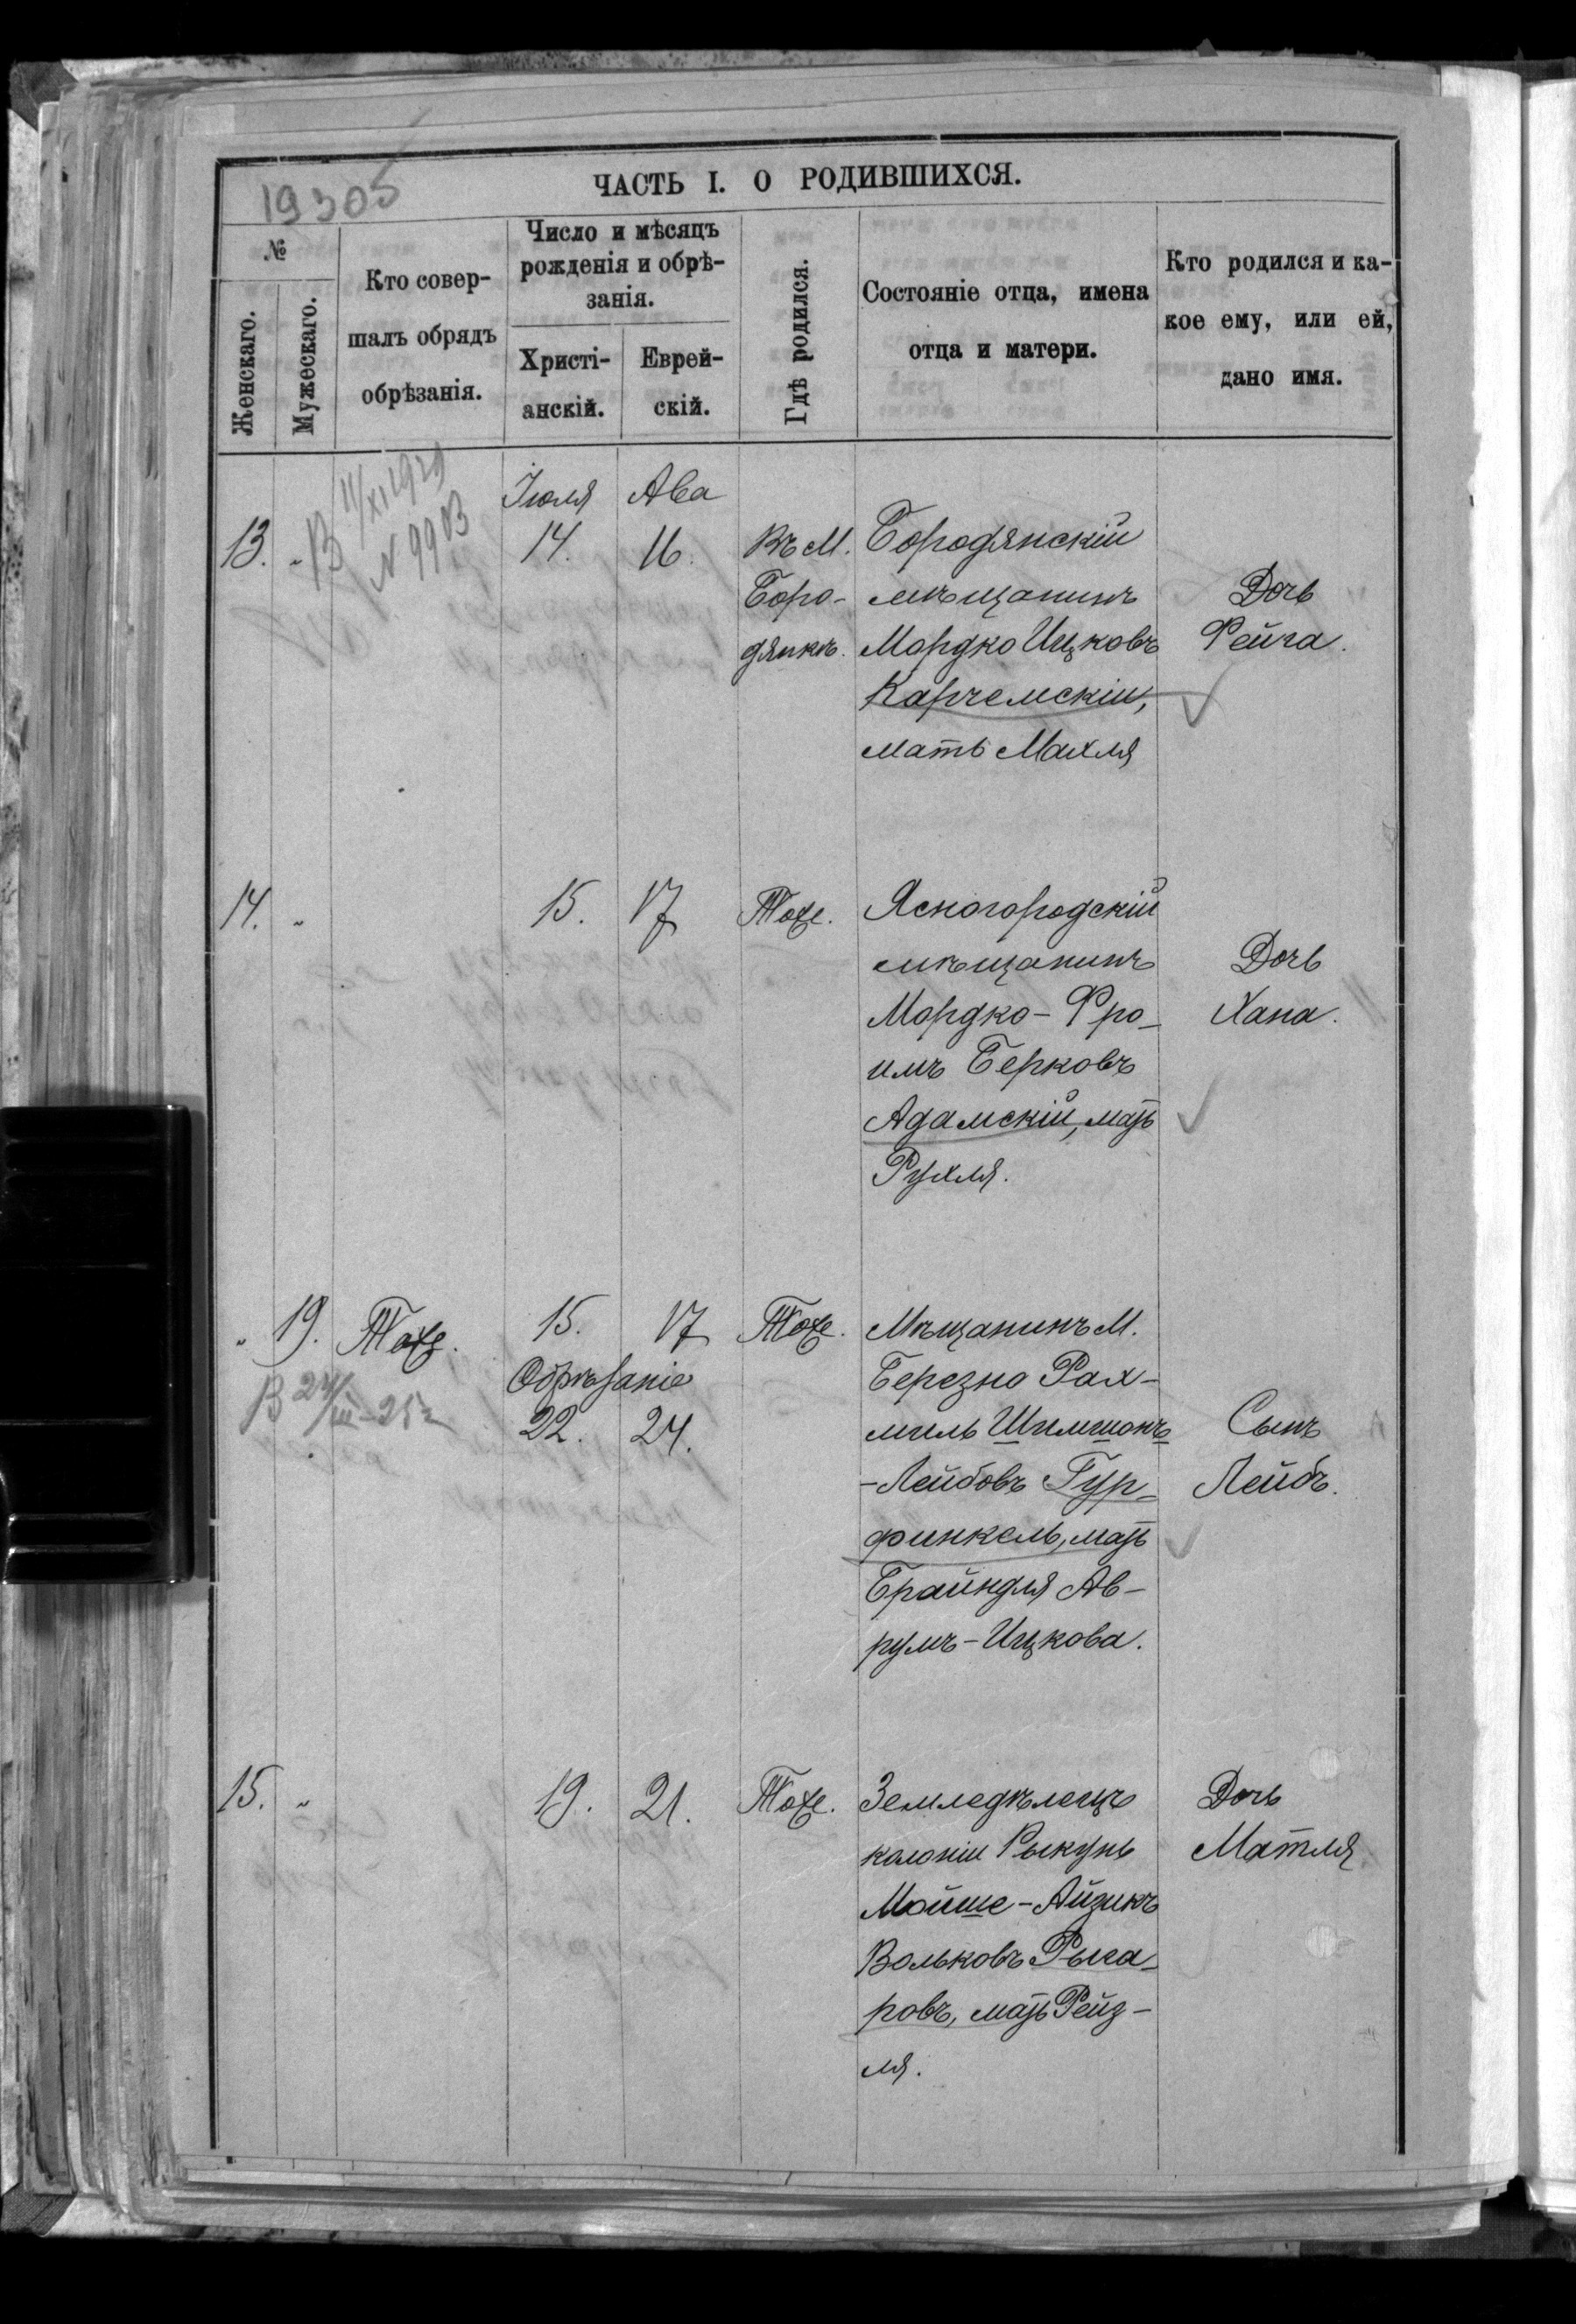 19305
ЧАСТЬ I. О РОДИВШИХСЯ.
№
Женскаго.
Мужескаго.
Кто совер-
шалъ обрядъ
обрѣзанія.
Число и мѣсяцъ
рожденія и обрѣ-
занія.
Христі-
анскій.
Еврей-
скій.
Гдѣ родился.
Состояніе отца, имена
отца и матери.
Кто родился и ка-
кое ему, или ей,
дано имя.
В 11/XI 1929
N 99 В
Іюля Ава
13. " 14. 16.
Въ М.
Боро-
дянкѣ.
Бородянскій
мѣщанинъ
Мордко Ицковъ
Карчемскій,
мать Махля
Дочь
Фейга.
14. " 15. 17 Тоже.
Ясногородскій
мѣщанинъ
Мордко-Фро-
имъ Берковъ
Адамскій, мать
Рухля.
Дочь
Хана.
" 19. Тоже. 15. 17 Тоже.
Обрѣзаніе
22. 24.
В 24/III-25 г
Мѣщанинъ М.
Березно Рах-
миль Шимшонъ
-Лейбовъ Гур-
финкель, мать
Брайндля Ав-
румъ-Ицкова.
Сынъ
Лейбъ.
15. " 19. 21. Тоже.
Земледѣлецъ
колоніи Рыкунь
Мойше-Айзикъ
Вольковъ Рыга-
ровъ, мать Рейз-
ля.
Дочь
Матля